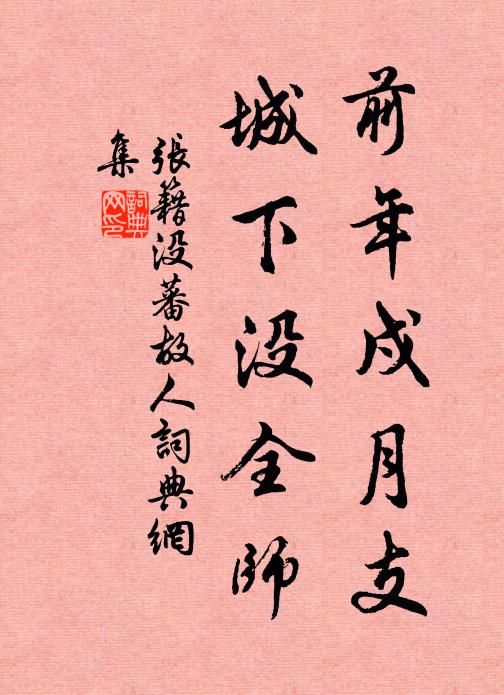 前年戍月支
城下没全师
張籍没蕃故人詞典網
集
詞典网印